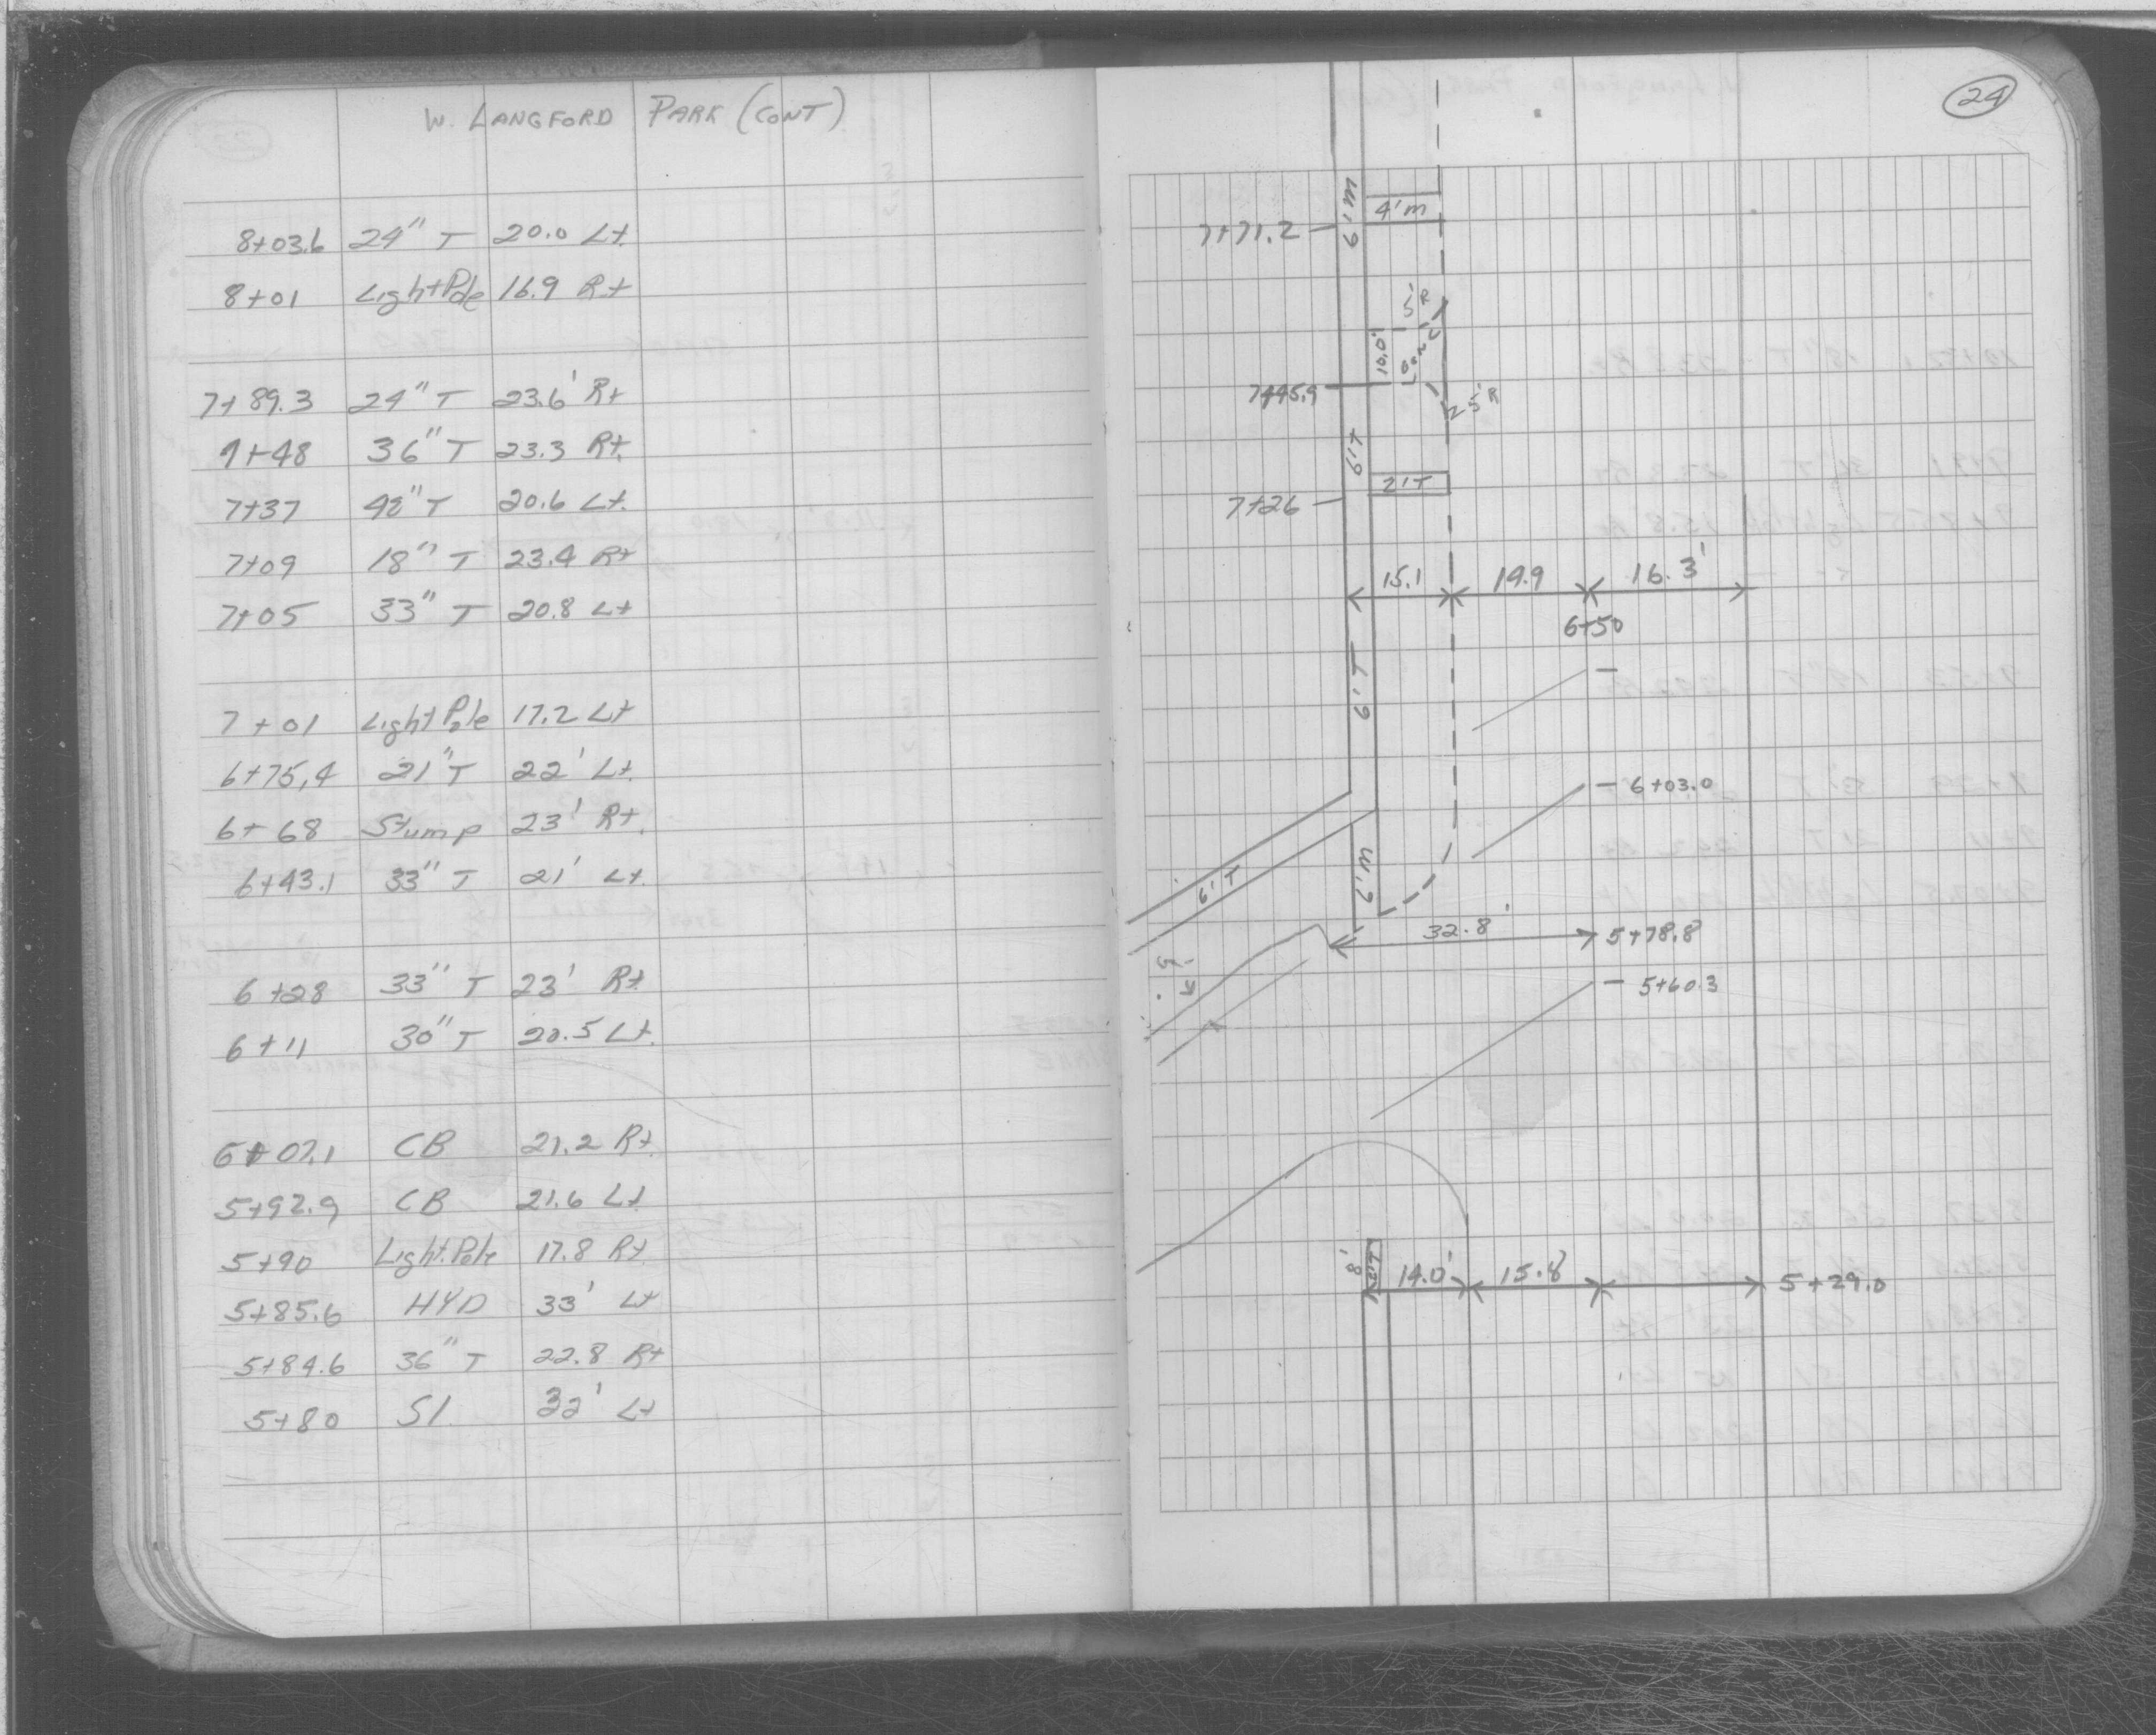 W. LANGFORD PARK (CONT)
8+03.6 24" T 20.0 Lt.
8+01 Light Pole 16.9 Rt
7+89.3 24" T 23.6' Rt
36" T 23.3 Rt.
7+37 20.6 Lt.
7+09 18" T 23.4 Rt
7+05 33" T 20.8 Lt
7+01 Light Pole 17.2 Lt
6+75.4 21" T 22' Lt.
6+68 Stump 23' Rt.
6+43.1 33" T 21' Lt.
6+28 33" T 23' Rt.
6+11 30" T 20.5 Lt.
6+07.1 CB 21.2 Rt.
5+92.9 CB 21.6 Lt
5+90 Light Pole 17.8 Rt.
5+85.6 HYD 33' Lt
5+84.6 36" T 22.8 Rt
5+80 SI. 32' Lt
24
6'M
4'M
7+71.2
5'R
10.0'
Conc
7+45.9
25'R
6'T
2'T
7+26
15.1 14.9 16.3'
6+50
6'T
6+03.0
7'M
6'T
32.8' 5+78.8
5+60.3
8'
14.0' 15.8 5+29.0